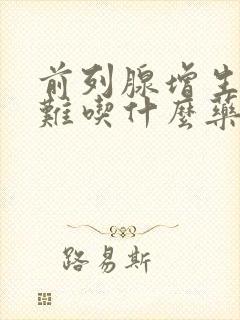 前列腺增生
難喫什麼藥
路易斯